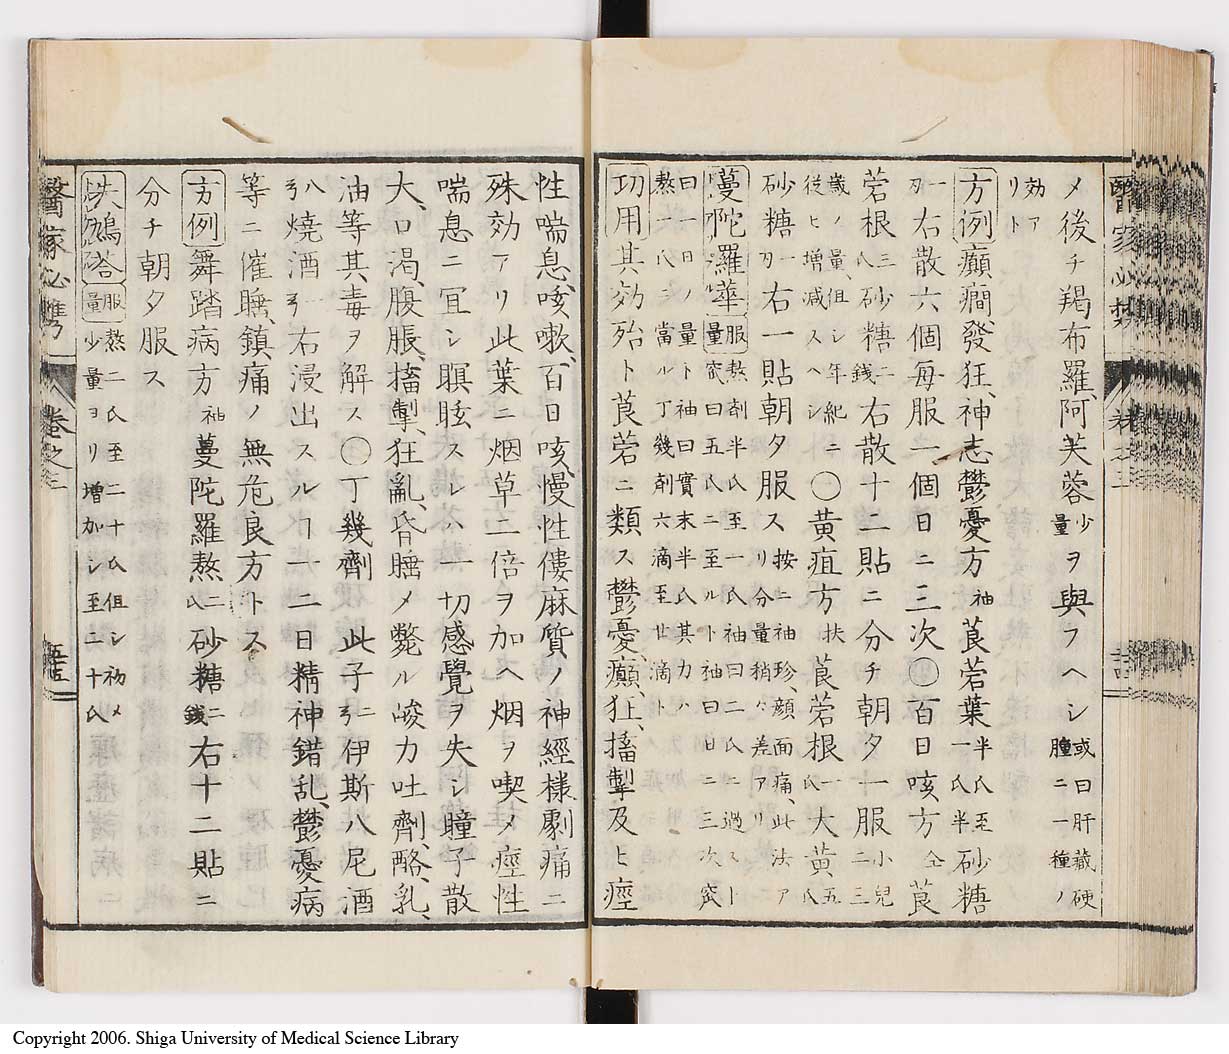 メ後チ羯布羅、阿芙蓉少量ヲ與フヘシ或曰肝臓硬腫ニ一種ノ
効アリト
方例癲癇、發狂、神志鬱憂方袖莨菪葉半氏至一氏半砂糖
一右散六個每服一個日ニ三次〇百日咳方仝莨
菪根三氏砂糖二錢右散十二貼ニ分チ朝夕一服小兒二三五
歲ノ量、但シ年紀ニ從ヒ増減スヘシ〇黄疸方扶莨菪根一氏大黄五氏
砂糖一右一貼朝夕服ス按ニ袖珍、顔面痛、此法アリ分量稍々差アリ
蔓陀羅華量服熬剤半氏至一氏袖曰二氏ニ過スト
曰一日ノ量ト袖曰實末半氏其力ハ熬一氏ニ當ル丁幾剤六滴至廿滴ト
功用其効殆ト莨菪ニ類ス鬱憂、癲狂、搐掣及ヒ痙
性喘息、咳嗽、百日咳、慢性僂麻質ノ神經様劇痛ニ
殊効アリ此葉ニ烟草二倍ヲ加ヘ烟ヲ喫メ痙性
喘息ニ宜シ瞑眩スレハ一切感覺ヲ失シ瞳子散
大、口渴、腹脹、搐掣狂亂、昏睡メ斃ル峻力吐劑、酪、乳、
油等其毒ヲ解ス〇丁幾劑此子二伊斯八尼酒
八燒酒右浸出スルヿ一二日精神錯乱、鬱憂病
等ニ催睡、鎮痛ノ無危良方トス
方例舞踏病方袖蔓陀羅熬二氏砂糖二錢右十二貼ニ
分チ朝夕服ス
失鳩答服量熬二氏至二十氏但シ初メ少量ヨリ増加シ至二十氏
醫家必携 卷之三
Copyright 2006. Shiga University of Medical Science Library